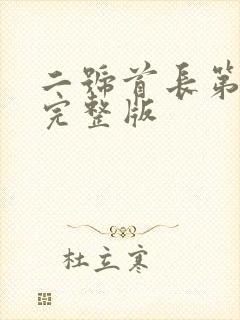 二號首長第
完整版
杜立寒